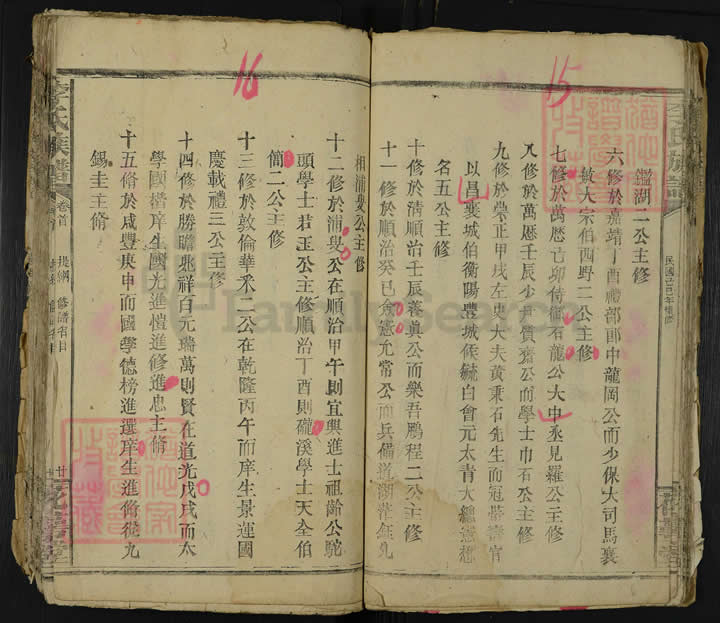 15
鑑湖二公主修
六修於嘉靖丁酉禮部郎中龍岡公而少保大司馬襄
敏大宗伯西野二公主修
七修於萬厯己卯侍御石龍公大中丞見羅公主修
八修於萬厯壬辰少尹質齋公而學士巾石公主修
九修於崇正甲戌左史大夫黄秉石先生而冠帶壽官
以昌襄城伯衡陽豐城候毓白會元太青大總憲懋
名五公主修
十修於清順治壬辰蓁真公而樂吾鵬程二公主修
十一修於順治癸巳僉憲允常公而兵備道
16
相浦叟公主修
十二修於浦叟公在順治甲午則宜興進士祖齡公駝
頭學士若玉公主修順治丁酉則礲溪學士天全伯
簡二公主修
十三修於敦倫華釆二公在乾隆丙午而庠生景運國
慶載禮三公主修
十四修於勝瞻兆祥百元瑞萬則賢在道光戊戌而太
學國楷庠生國光進愷進修進忠主脩
十五脩於咸豐庚申而國學德榜進選庠生進脩從九
錫圭主脩
李氏族譜
卷首
FamilySearch